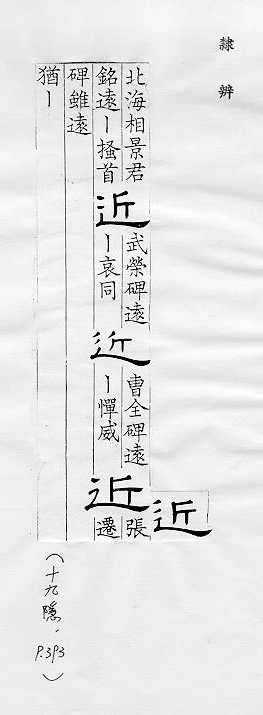 隸辨
近
北海相景君
銘遠〡搔首
近
武榮碑遠
〡哀同
近
曹全碑遠
〡憚威
近
張
遷
碑雖遠
猶〡
（十九隱，P.393）